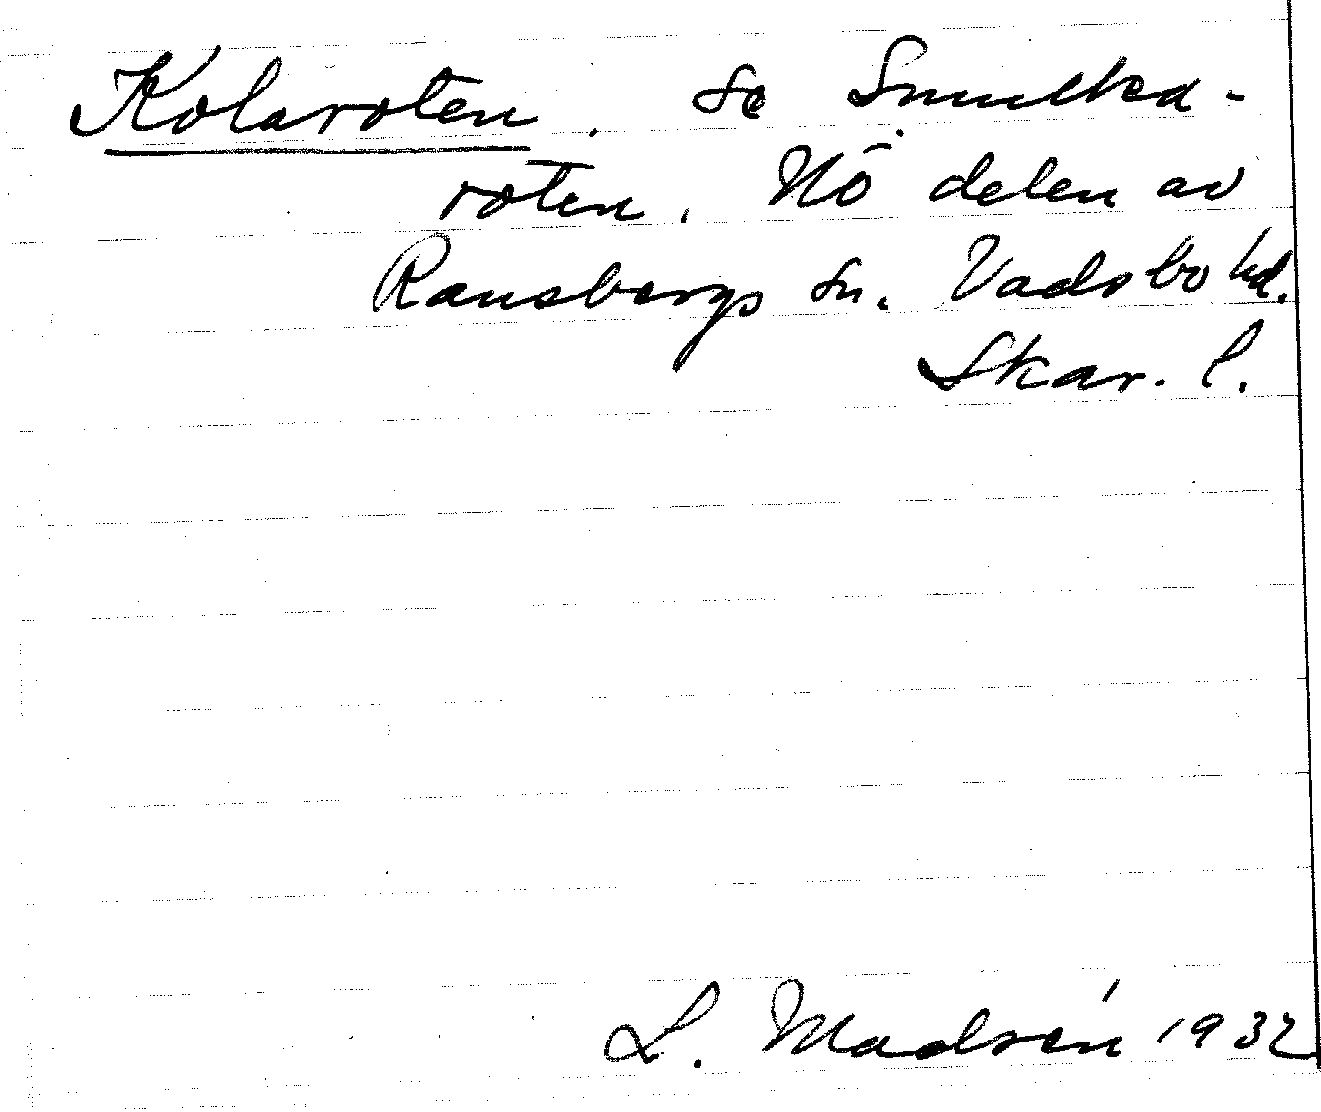 Kolaroten. Se Smulka-
roten. Nö delen av
Ransbergs sn. Vadsbo hd.
Skar. l.
L. Madsén 1932